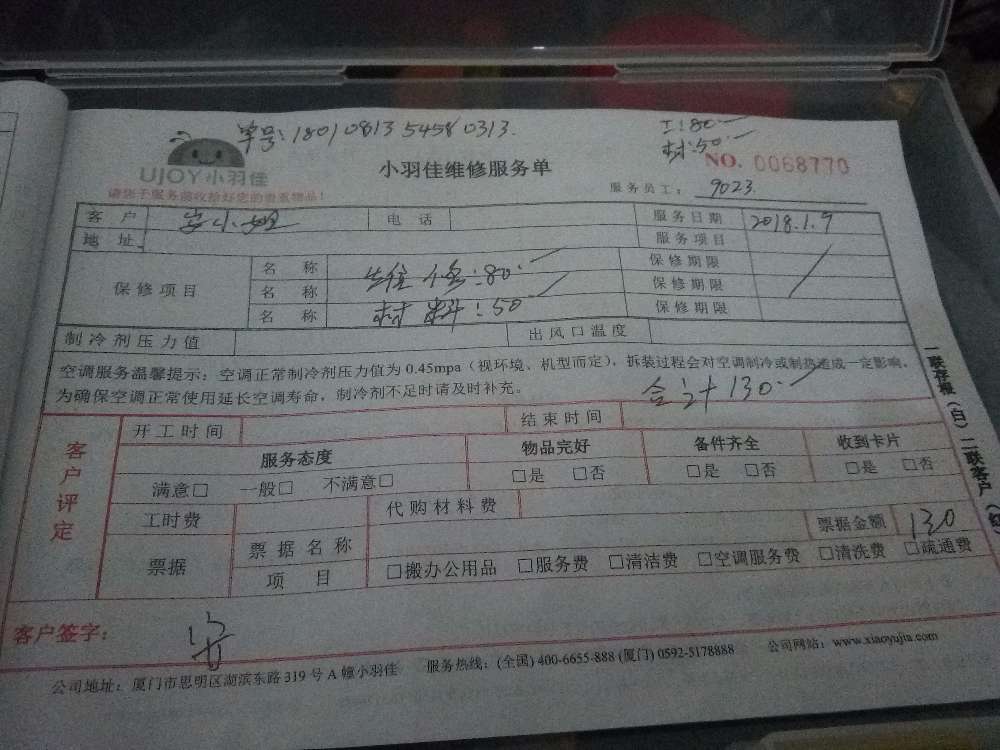 单号:1801081354580313.
工:80.
材:50.
UJOY小羽佳
小羽佳维修服务单
NO. 0068770
请您于服务前收拾好您的贵重物品!
服务员工: 9023.
客户 安小姐 电话 服务日期 2018.1.9
地址 服务项目
保修项目 名称 维修:80. 保修期限
名称 材料:50 保修期限
名称 保修期限
制冷剂压力值 出风口温度
空调服务温馨提示:空调正常制冷剂压力值为0.45mpa(视环境、机型而定),拆装过程会对空调制冷或制热造成一定影响,
为确保空调正常使用延长空调寿命,制冷剂不足时请及时补充。
合计130.
客户评定
开工时间 结束时间
服务态度 物品完好 备件齐全 收到卡片
满意□ 一般□ 不满意□ □是 □否 □是 □否 □是 □否
工时费 代购材料费
票据 票据名称 票据金额 130
项目 □搬办公用品 □服务费 □清洁费 □空调服务费 □清洗费 □疏通费
客户签字: 安
公司地址:厦门市思明区湖滨东路319号A幢小羽佳 服务热线:(全国) 400-6655-888 (厦门) 0592-5178888 公司网站:www.xiaoyujia.com
一联存根(白) 二联客户